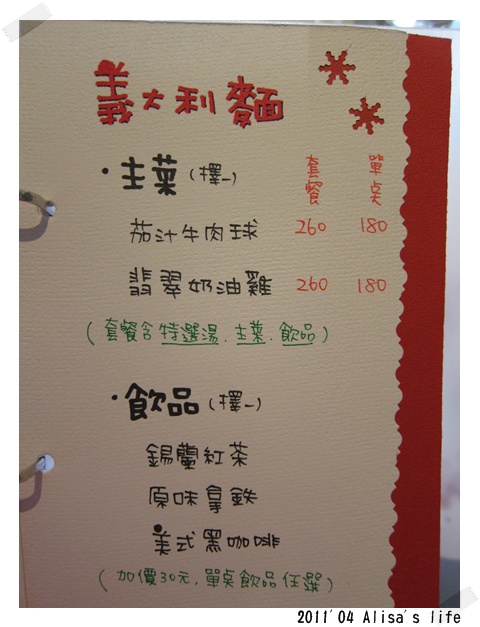 義大利麵
·主菜(擇一) 套餐 單点
茄汁牛肉球 260 180
翡翠奶油雞 260 180
(套餐含特選湯.主菜.飲品)
·飲品(擇一)
錫蘭紅茶
原味拿鉄
美式黑咖啡
(加價30元,單点飲品任選)
2011'04 Alisa's life